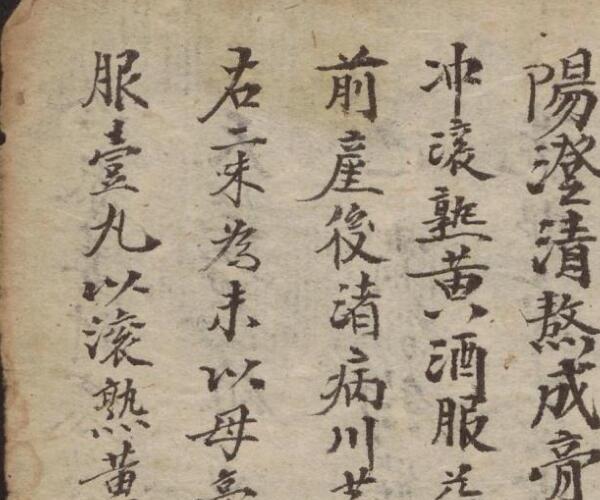 陽澄清熬成膏
冲滚熟黄酒服
前產後渚病川
右二味為末以母
服壹丸以滚熟黄